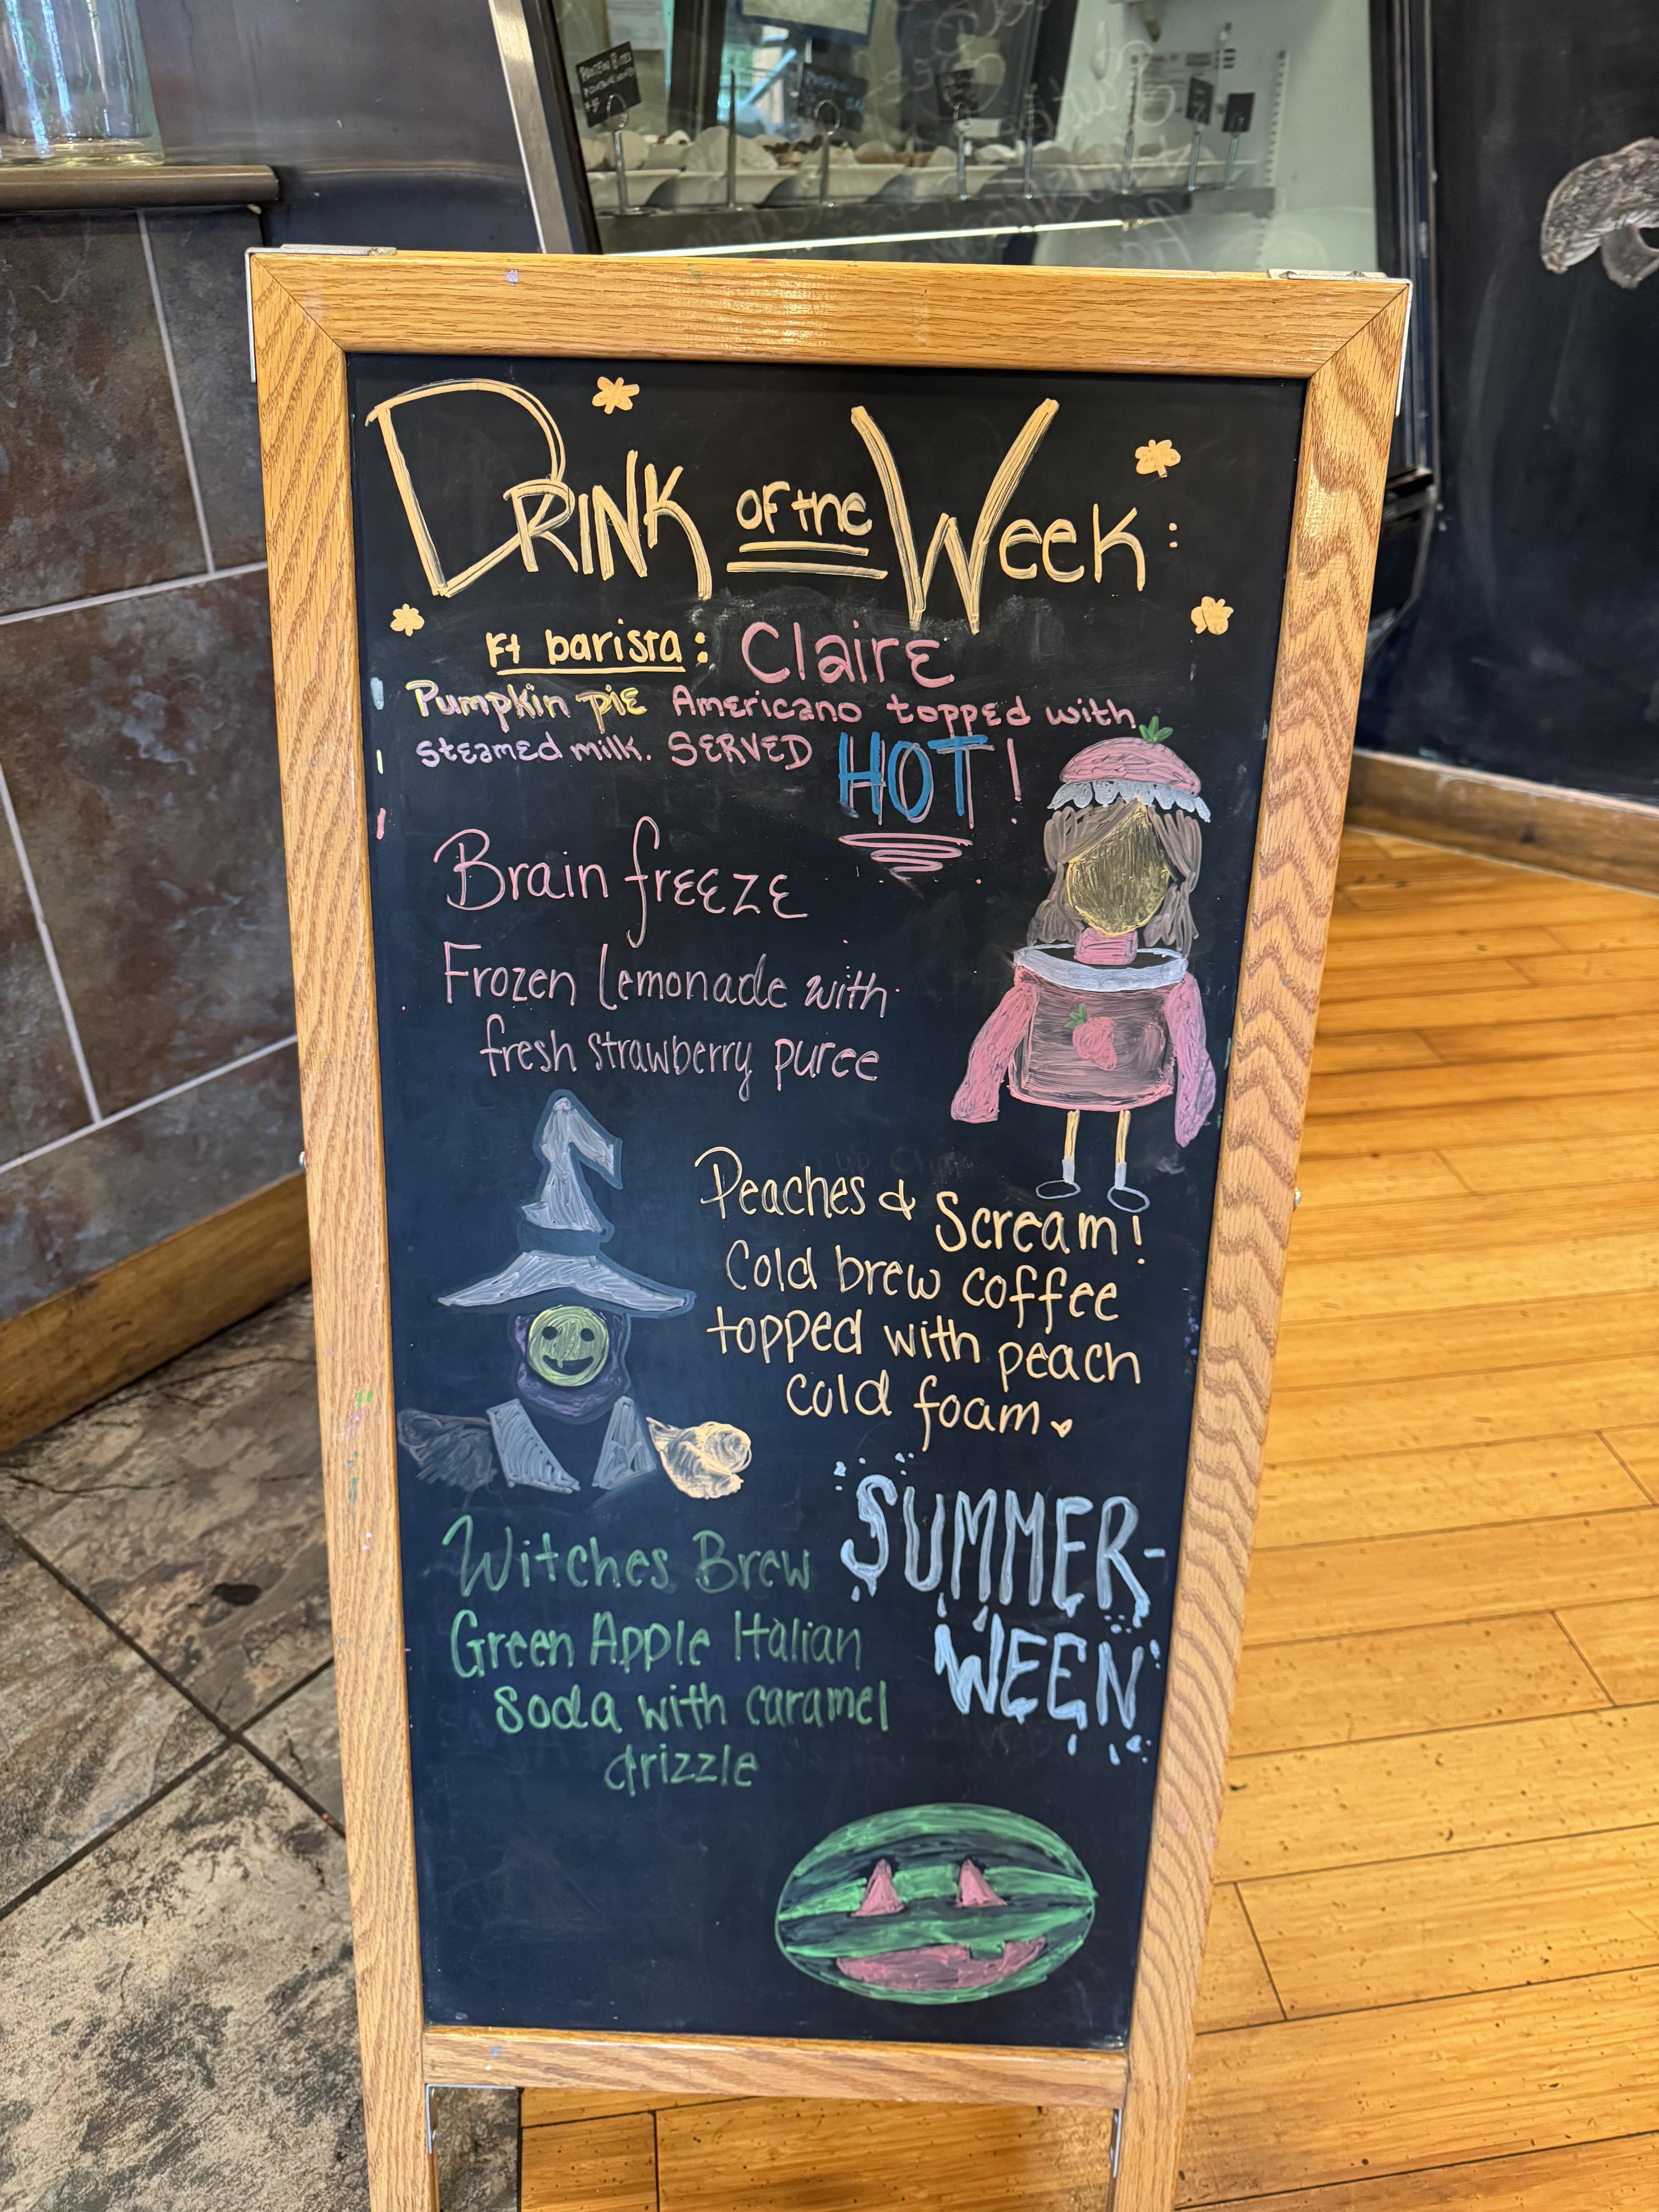 DRINK OF the WEEK:
Ft barista: Claire
Pumpkin pie Americano topped with
steamed milk. SERVED HOT!
Brain freeze
Frozen lemonade with
fresh strawberry puree
Peaches & Scream!
Cold brew coffee
topped with peach
cold foam
Witches Brew
Green Apple Italian
soda with caramel
drizzle
SUMMER-
WEEN